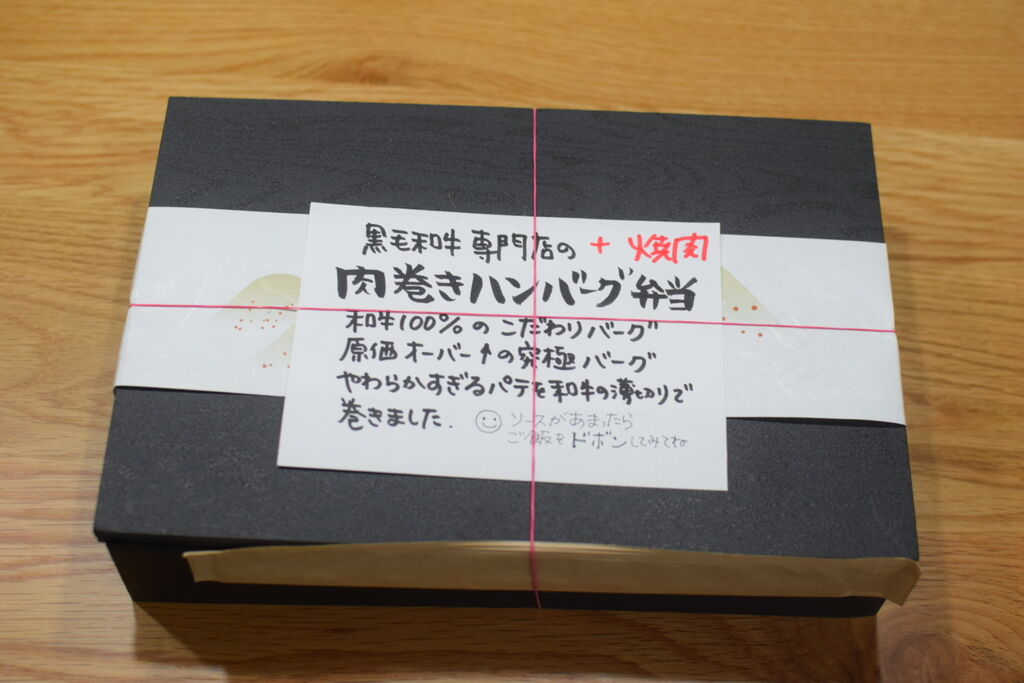 黒毛和牛専門店の + 焼肉
肉巻きハンバーグ弁当
和牛100%のこだわりバーグ
原価オーバー↑の究極バーグ
やわらかすぎるパテを和牛の薄切りで
巻きました.
ソースがあまったら
ご飯をドボンしてみてね